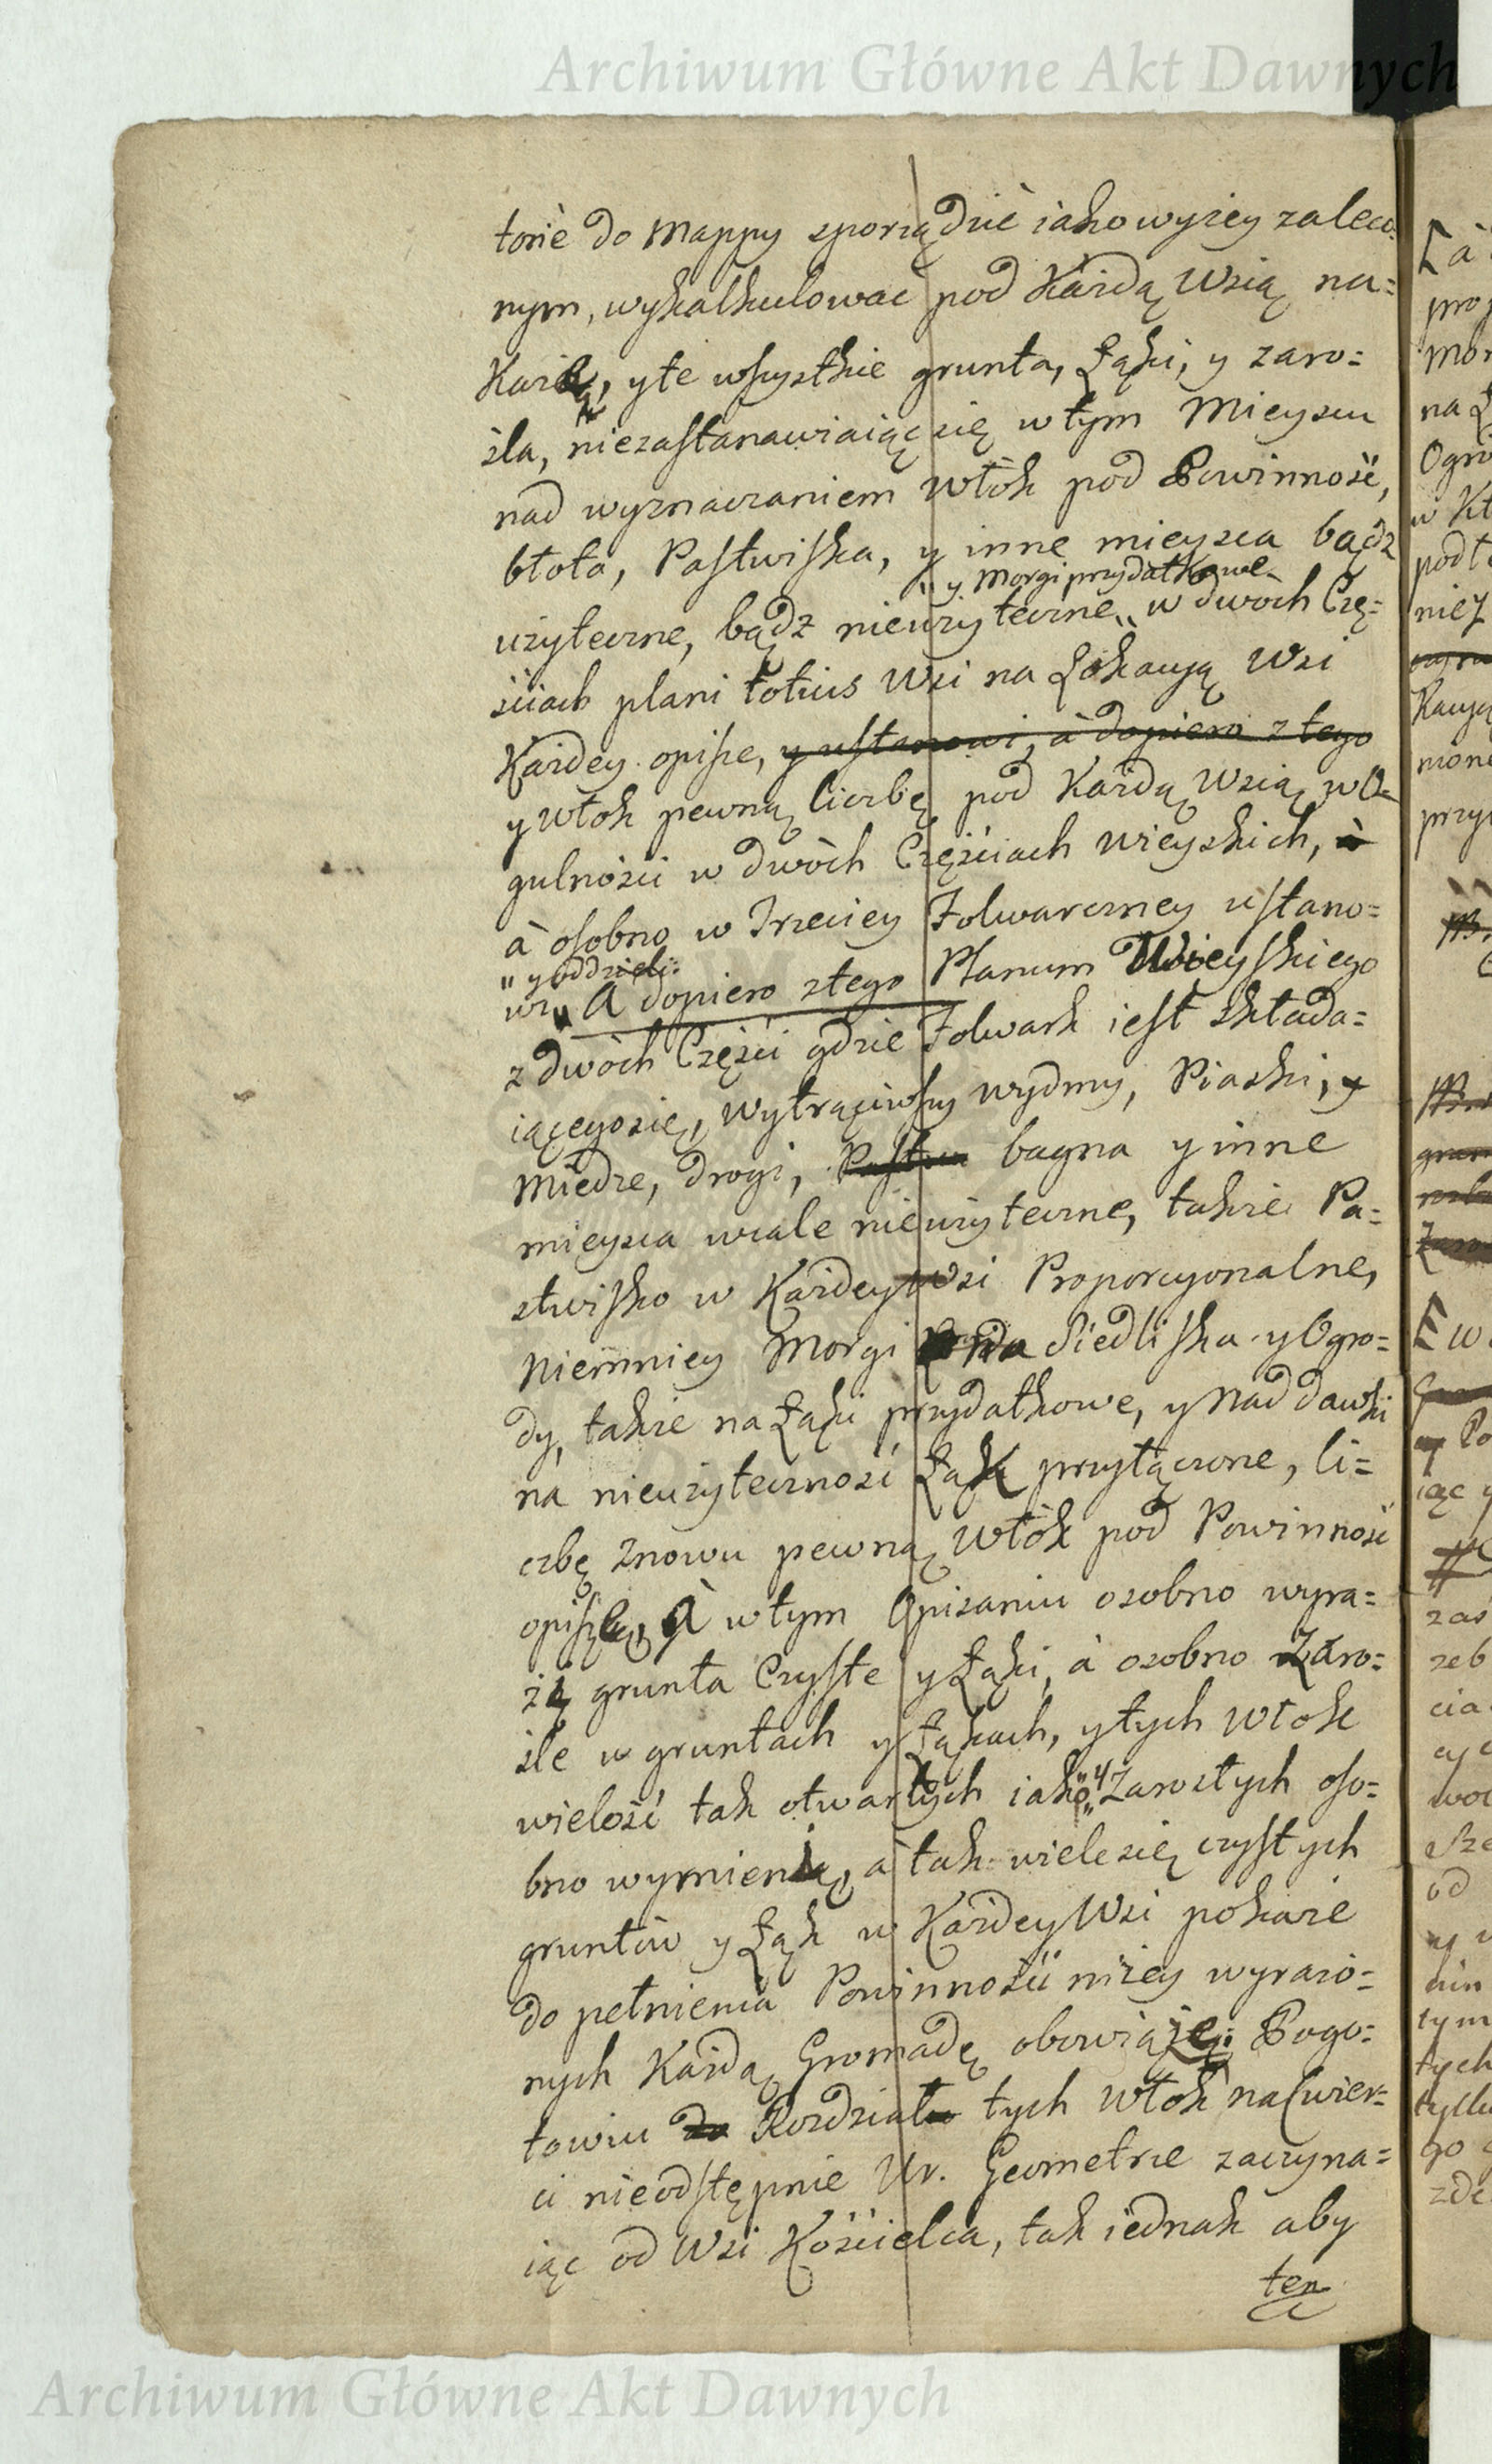 Archiwum Główne Akt Dawnych
torie do Mappy sporządzić iako wyżey zaleco=
nym, wykalkulować pod Każdą Wsią na=
Każą, y te wszystkie grunta, Łąki, y zaro=
śla, niezastanawiaiąc się w tym Mieyscu
nad wyznaczaniem Włók pod Powinność,
błota, Pastwiska, y inne mieysca bądź
" y Morgi przydatkowe
użyteczne, bądź nieużyteczne " w dwóch Czę=
ściach plani totius Wsi na Lokacyą Wsi
Każdey opisze, y ustanowi, à dopiero z tego
y Włok pewną liczbę pod Każdą Wsią w O=
gulności w dwóch Częściach wieyskich, à
à osobno w Trzeciey Folwarczney ustano=
" y oddzieli:
wi " A dopiero z tego Planum Wieyskiego
z dwóch Części gdzie Folwark iest składa=
iącego się, wytrąciwszy wydmy, Piaski, y
Miedze, drogi, Pastw bagna y inne
mieysca wcale nieużyteczne, także Pa=
stwisko w Każdey Wsi Proporcyonalne,
Niemniey Morgi na Siedliska y Ogro=
dy, także na Łąki przydatkowe, y Naddawki
na nieużyteczność Łąk przyłączone, li=
czbę znowu pewną Włók pod Powinność
opiszą, A w tym Opisaniu osobno wyra=
żą grunta Czyste y Łąki, à osobno Zaro=
śle w gruntach y Łąkach, y tych Włok
wielość tak otwartych iako " y Zarosłych oso=
bno wymienią, à tak wiele się czystych
gruntów y Łąk w Każdey Wsi pokaże
do pełnienia Powinności niżey wyrażo=
nych Każdą Gromadę obowiążę: Pogo=
towiu do Rozdziału tych Włók na Cwier=
ci nieodstępnie Ur. Geometrze zaczyna=
iąc od Wsi Kościelca, tak iednak aby
ten
Archiwum Główne Akt Dawnych